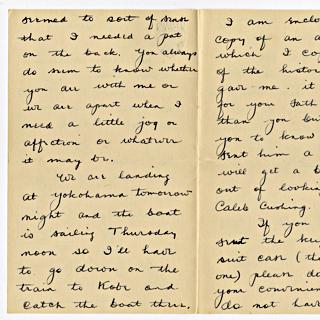 seemed to sort of sense
that I needed a pat
on the back. You always
do seem to know whether
you are with me or
we are apart when I
need a little joy or
affection or whatever
it may be.
We are landing
at Yokohama tomorrow
night and the boat
is sailing Thursday
noon so I'll have
to go down on the
train to Kobe and
catch the boat there.
I am enclo
copy of an a
which I co
of the histor
gave me. it
for your fath
than you bu
you to know
sent him a
will get a b
out of lookin
Caleb Cushing.
If you
sent the key
suit case (th
one) please d
your convenien
do not hav